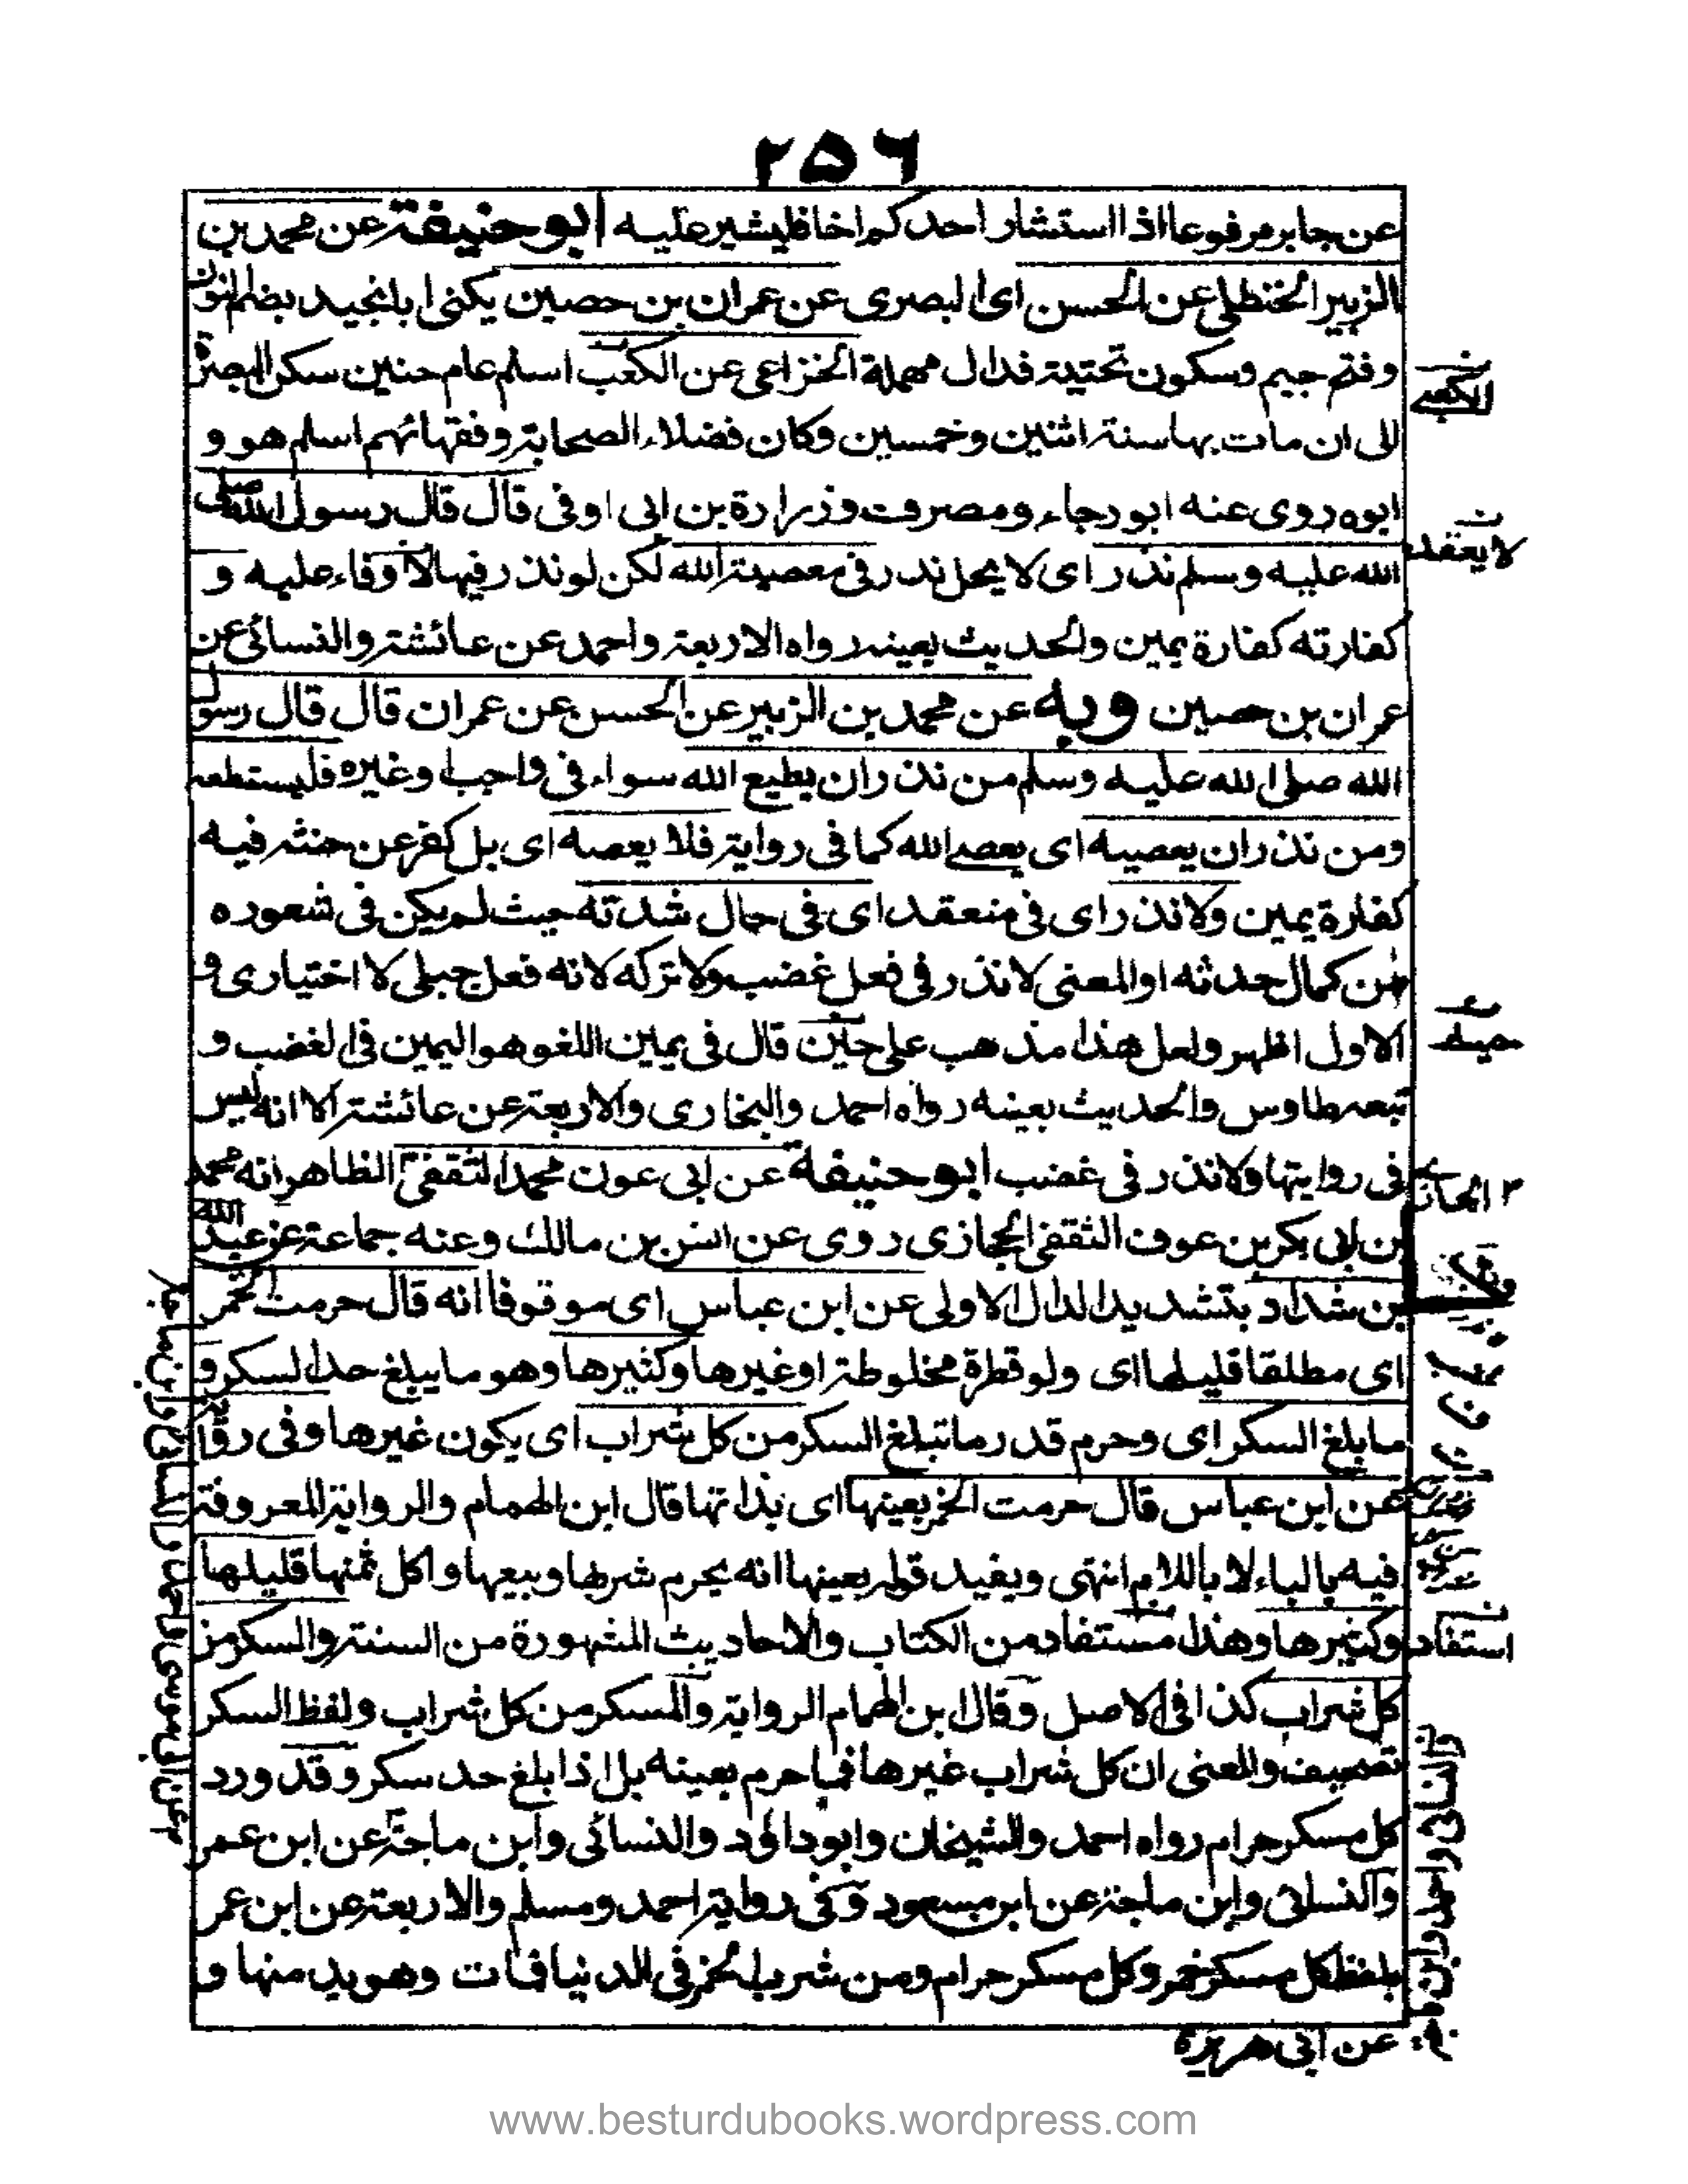 ۲۵۶
عن جابر مرفوعا اذا استشار احدكم اخاه فليشير عليه ابو حنيفة عن محمد بن
الزبير الحنظلى عن الحسن اى البصرى عن عمران بن حصين يكنى ابا نجيد بضم النون
وفتح جيم وسكون تحتية فدال مهملة الخزاعى عن الكعب اسلم عام حنين سكن البصرة
الى ان مات بها سنة اثنين وخمسين وكان فضلاء الصحابة وفقهائهم اسلم هو و
ابوه روى عنه ابو رجاء ومصروف وزرارة بن ابى اوفى قال قال رسول الله صلى
الله عليه وسلم نذر اى لا يحل نذر فى معصية الله لكن لو نذر فيها لا وفاء عليه و
كفارته كفارة يمين والحديث بعينه رواه الاربعة واحمد عن عائشة والنسائى عن
عمران بن حصين وبه عن محمد بن الزبير عن الحسن عن عمران قال قال رسول
الله صلى الله عليه وسلم من نذر ان يطيع الله سواء فى واجب وغيره فليستطعه
ومن نذر ان يعصيه اى يعصى الله كما فى رواية فلا يعصه اى بل كفر عن حنثه فيه
كفارة يمين ولا نذر اى فى منعقد اى فى حال شدته حيث لم يكن فى شعوره
من كمال حدثه او المعنى لا نذر فى فعل غضب ولا تركه لانه فعل جبلى لا اختيارى و
الاول اظهر ولعل هذا مذهب على حين قال فى يمين اللغو هو اليمين فى الغضب و
تبعه طاوس والحديث بعينه رواه احمد والبخارى والاربعة عن عائشة الا انه ليس
فى روايتها ولا نذر فى غضب ابو حنيفة عن ابى عون محمد الثقفى الظاهر انه محمد
بن ابى بكر بن عوف الثقفى الحجازى روى عن انس بن مالك وعنه جماعة عن عبد الله
بن شداد بتشديد الدال الاولى عن ابن عباس اى موقوفا انه قال حرمت الخمر
اى مطلقا قليلها اى ولو قطرة مخلوطة او غيرها وكثيرها وهو ما يبلغ حد السكر و
ما بلغ السكر اى وحرم قدر ما تبلغ السكر من كل شراب اى يكون غيرها وفى رواية
عن ابن عباس قال حرمت الخمر بعينها اى بذاتها قال ابن الهمام والرواية المعروفة
فيه بالباء لا باللام انتهى ويفيد قوله بعينها انه يحرم شربها وبيعها واكل ثمنها قليلها
وكثيرها وهذا مستفاد من الكتاب والاحاديث المشهورة من السنة والسكر من
كل شراب كذا فى الاصل وقال ابن الهمام الرواية والمسكر من كل شراب ولفظ السكر
تصحيف والمعنى ان كل شراب غيرها فما حرم بعينه بل اذا بلغ حد سكر وقد ورد
كل مسكر حرام رواه احمد والشيخان وابو داؤد والنسائى وابن ماجة عن ابن عمر
والنسائى وابن ماجة عن ابن مسعود وفى رواية احمد ومسلم والاربعة عن ابن عمر
بلفظ كل مسكر خمر وكل مسكر حرام ومن شرب الخمر فى الدنيا فمات وهو يدمنها و
الكعبى
لا يعقد
استفاد
عن ابى هريرة
www.besturdubooks.wordpress.com